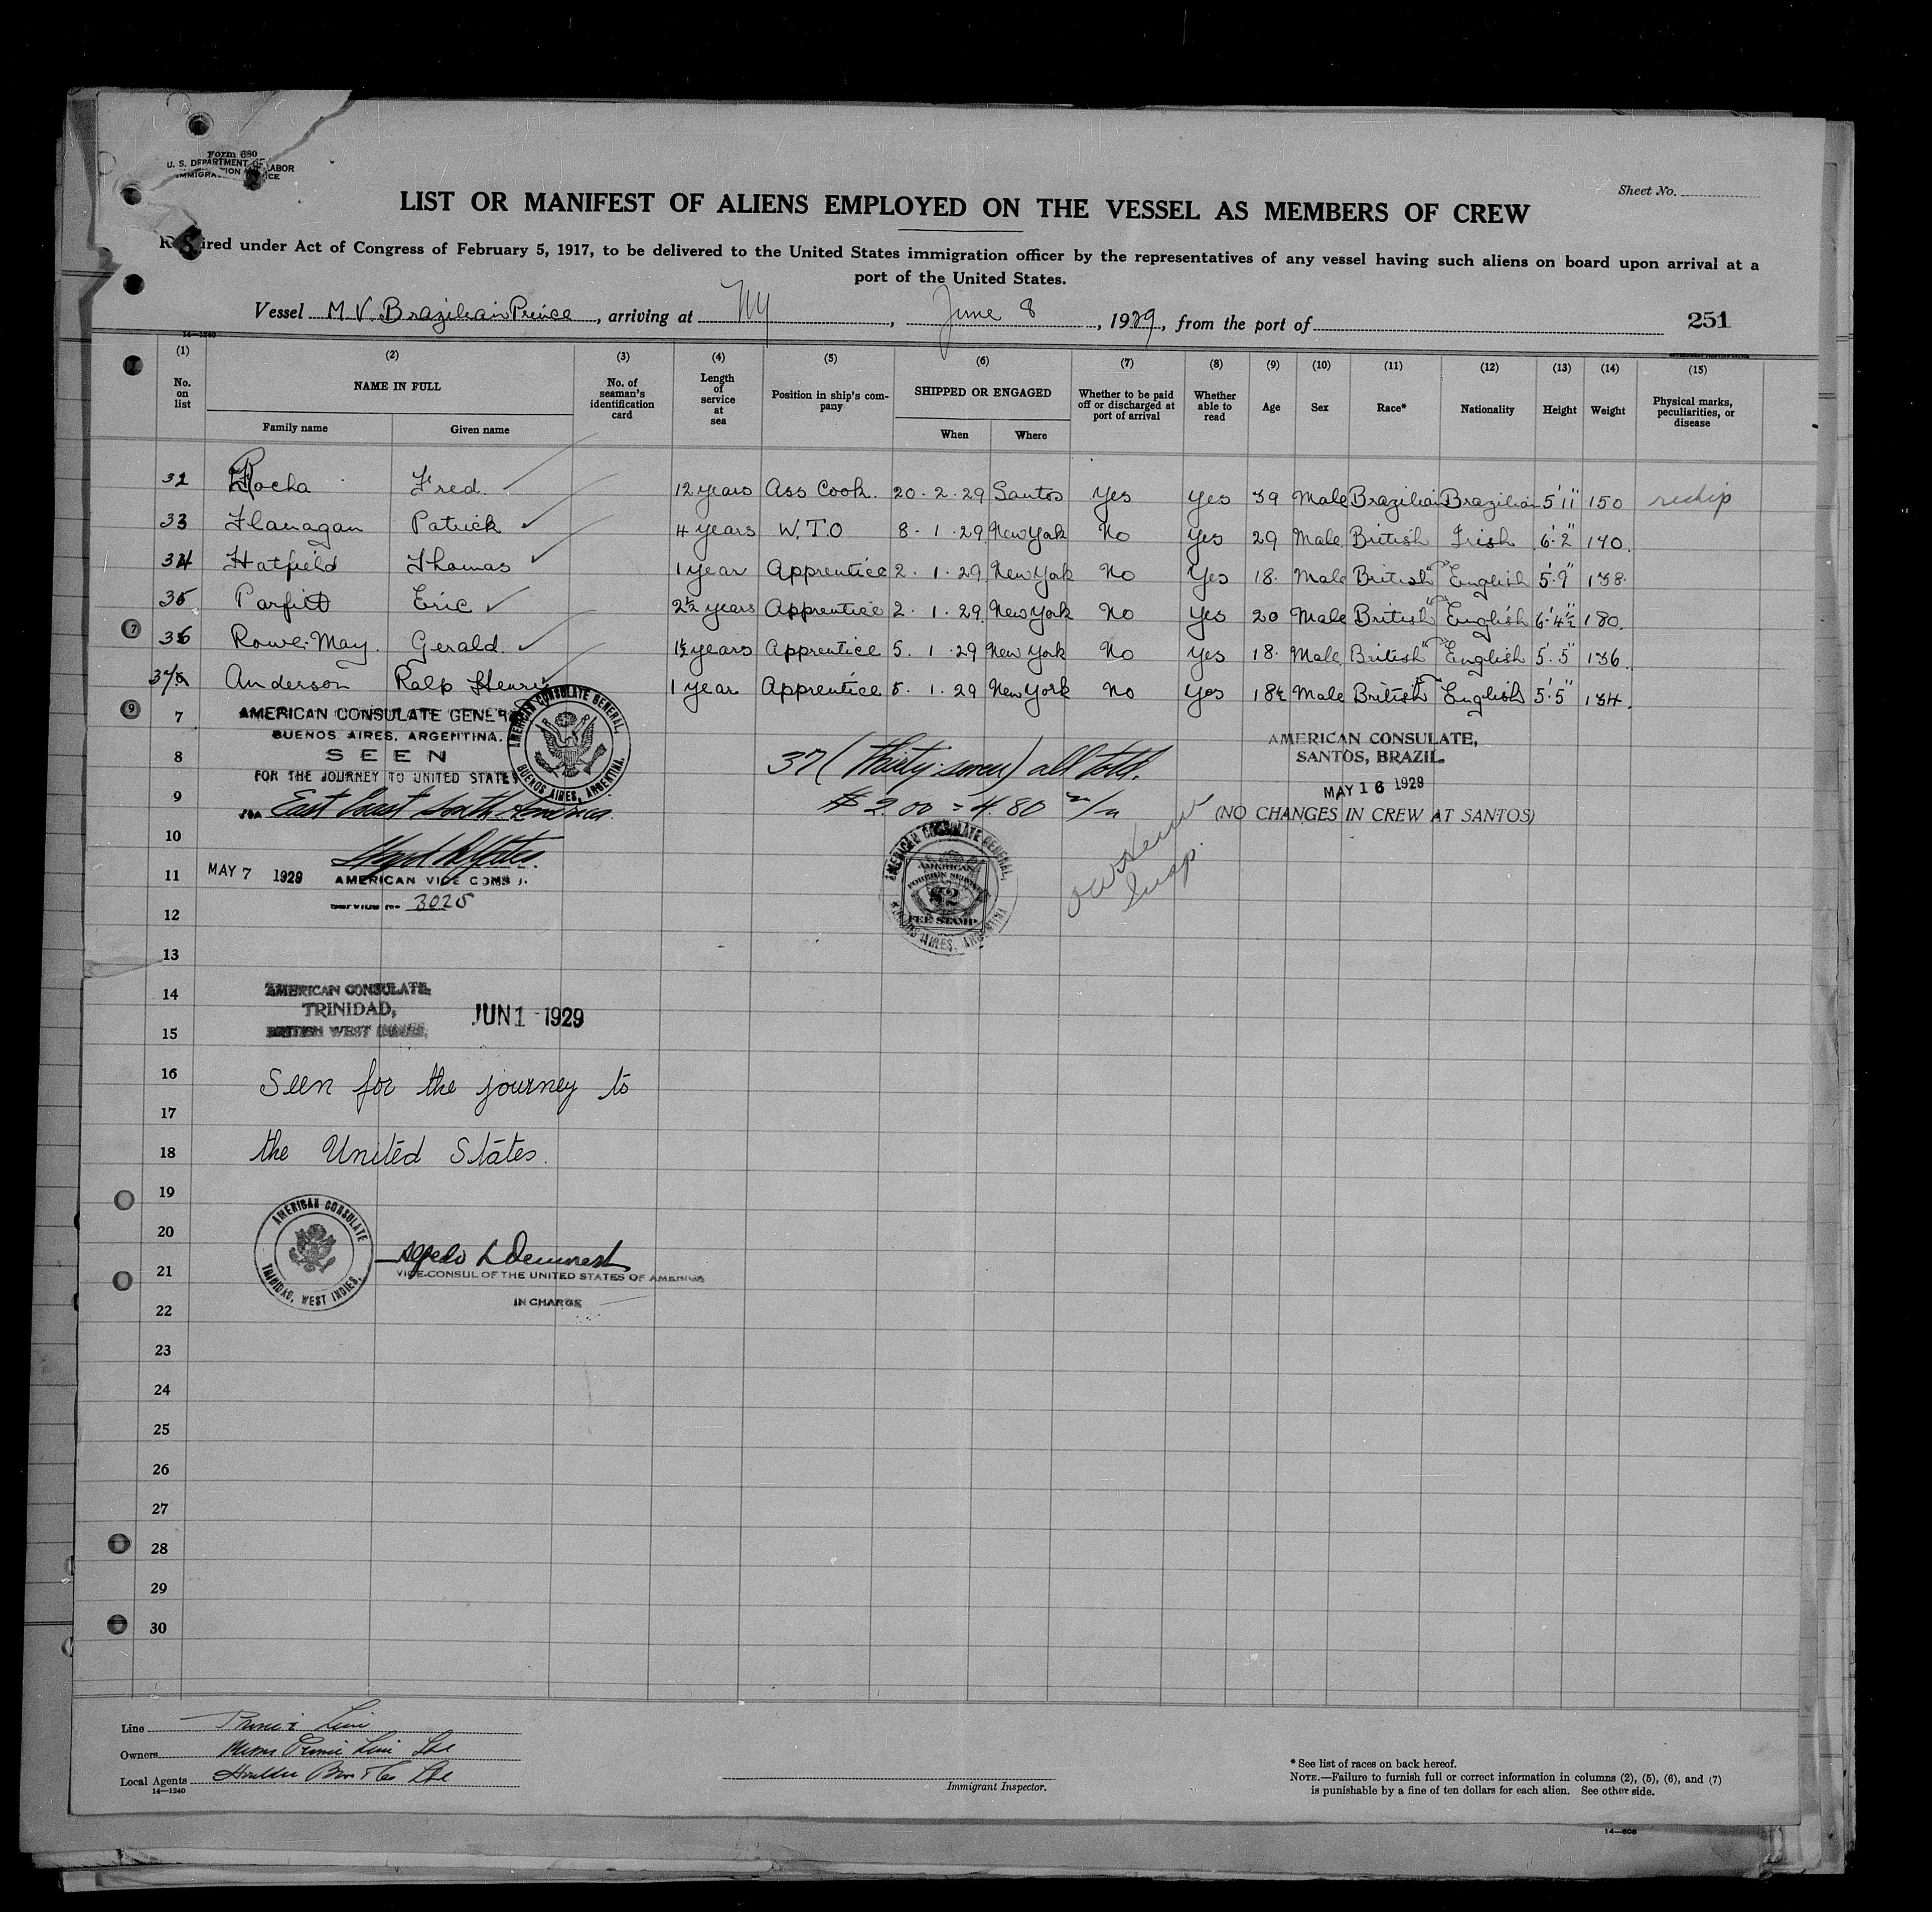 Form 680
U. S. DEPARTMENT OF LABOR
Sheet No.
LIST OR MANIFEST OF ALIENS EMPLOYED ON THE VESSEL AS MEMBERS OF CREW
under Act of Congress of February 5, 1917, to be delivered to the United States immigration officer by the representatives of any vessel having such aliens on board upon arrival at a
port of the United States.
Vessel M. V. Brazilian Prince, arriving at NY, June 8, 1929, from the port of 251
14—1240
(1) (2) (3) (4) (5) (6) (7) (8) (9) (10) (11) (12) (13) (14) (15)
No. on list NAME IN FULL No. of seaman's identification card Length of service at sea Position in ship's company SHIPPED OR ENGAGED Whether to be paid off or discharged at port of arrival Whether able to read Age Sex Race* Nationality Height Weight Physical marks, peculiarities, or disease
Family name Given name When Where
32 Rocha Fred. 12 years Ass Cook. 20 . 2 . 29 Santos Yes Yes 39 Male Brazilian Brazilian 5'11" 150 reship
33 Flanagan Patrick 4 years W.T.O 8 . 1 . 29 New York No Yes 29 Male British Irish 6'2" 170.
34 Hatfield Thomas 1 year Apprentice 2 . 1 . 29 New York No Yes 18. Male British English 5'.9" 138.
35 Parfitt Eric 2½ years Apprentice 2 . 1 . 29 New York No Yes 20 Male British English 6'.4½" 180.
36 Rowe-May. Gerald. 1½ years Apprentice 5 . 1 . 29 New York No Yes 18. Male British English 5'.5" 136.
37 Anderson Ralp Henry 1 year Apprentice 5 . 1 . 29 New York No Yes 18½ Male British English 5'.5" 134.
7 AMERICAN CONSULATE GENERAL
BUENOS AIRES, ARGENTINA.
8 SEEN
FOR THE JOURNEY TO UNITED STATES
9 VIA East Coast South America.
AMERICAN CONSULATE GENERAL, BUENOS AIRES, ARGENTINA.
37 (Thirty-seven) all told.
$ 2.00 = 4.80 m/n
AMERICAN CONSULATE,
SANTOS, BRAZIL.
MAY 16 1929
(NO CHANGES IN CREW AT SANTOS)
10
11 MAY 7 1929 AMERICAN VICE CONSUL
Service No. 3025
AMERICAN CONSULATE GENERAL, BUENOS AIRES, ARGENTINA
AMERICAN
FOREIGN SERVICE
$2
FEE STAMP
Insp.
12
13
14 AMERICAN CONSULATE,
TRINIDAD, JUN 1 - 1929
15 BRITISH WEST INDIES.
16 Seen for the journey to
17
18 the United States.
19
20 AMERICAN CONSULATE TRINIDAD, WEST INDIES.
21 VICE-CONSUL OF THE UNITED STATES OF AMERICA
22 IN CHARGE
23
24
25
26
27
28
29
30
Line Prince Line
Owners Prince Line Ltd
Local Agents Bros & Co Ltd
14—1240
Immigrant Inspector.
* See list of races on back hereof.
NOTE.—Failure to furnish full or correct information in columns (2), (5), (6), and (7)
is punishable by a fine of ten dollars for each alien. See other side.
14—606